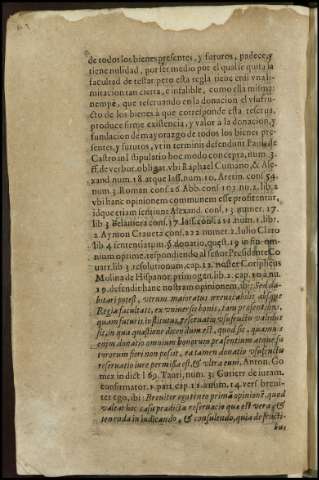 de todos los bienes presentes, y futuros, padece, y
tiene nulidad, por ser medio por el qual se quita la
facultad de testar: pero esta regla tiene en si vna li-
mitacion tan cierta, e infalible, como ella misma:
nempè, que reseruando en la donacion el vsufru-
cto de los bienes à que corresponde esta reserua,
produce firme existencia, y valor a la donacion, y
fundacion de mayorazgo de todos los bienes pre-
sentes, y futuros, vt in terminis defendunt Paul. de
Castro in l. stipulatio hoc modo concepta, num. 3.
ff. de verbor. obligat. vbi Raphael Cumano, & Ale-
xand. num. 18. atque Iass. num. 10. Aretin. cons. 54.
num. 3. Roman. cons. 26. Abb. cons. 102. nu. 2. lib. 2.
vbi hanc opinionem communem esse profitentur,
idque etiam sentiunt Alexand. cons. 13. numer. 17.
lib. 3. cons. 37. Iass. cons. num. 1. libr.
2. Aymon Craueta cons. numer. 2. Iulio Claro
lib. 4. sententiarum, §. donatio, quæst. 19. in fin. om-
nium optime, respondiendo al señor Presidente Co-
uarr. lib. 3. resolutionum, cap. 12. noster Coripheus
Molina de Hispanor. primogen. lib. 2. cap. 10. à nu.
19. defendit hanc nostram opinionem, ibi: Sed du-
bitari potest, vtrum maioratus irreuocabilis absque
Regia facultate, ex vniuersis bonis, tam præsentibus,
quam futuris institutus, reseruato vsufructu validus
sit, in qua quæstione dicendum est, quod sic, quamuis
enim donatio omnium bonorum præsentium atque fu-
turorum fieri non possit, ea tamen donatio vsufructus
reseruatio iure permissa est, & vtum est, Anton. Go-
mez in dict. l. 69. Tauri, num. 3. Gutierr. de iuram.
confirmator. 1. part. cap. 11. num. 14. vers. breui-
ter ego, ibi: Breuiter ego teneo primã opinionẽ, quod
valeat hoc casu prædicta reseruatio que est vera, &
tenenda in iudicando, & consulendo, quia de fructi-
bus